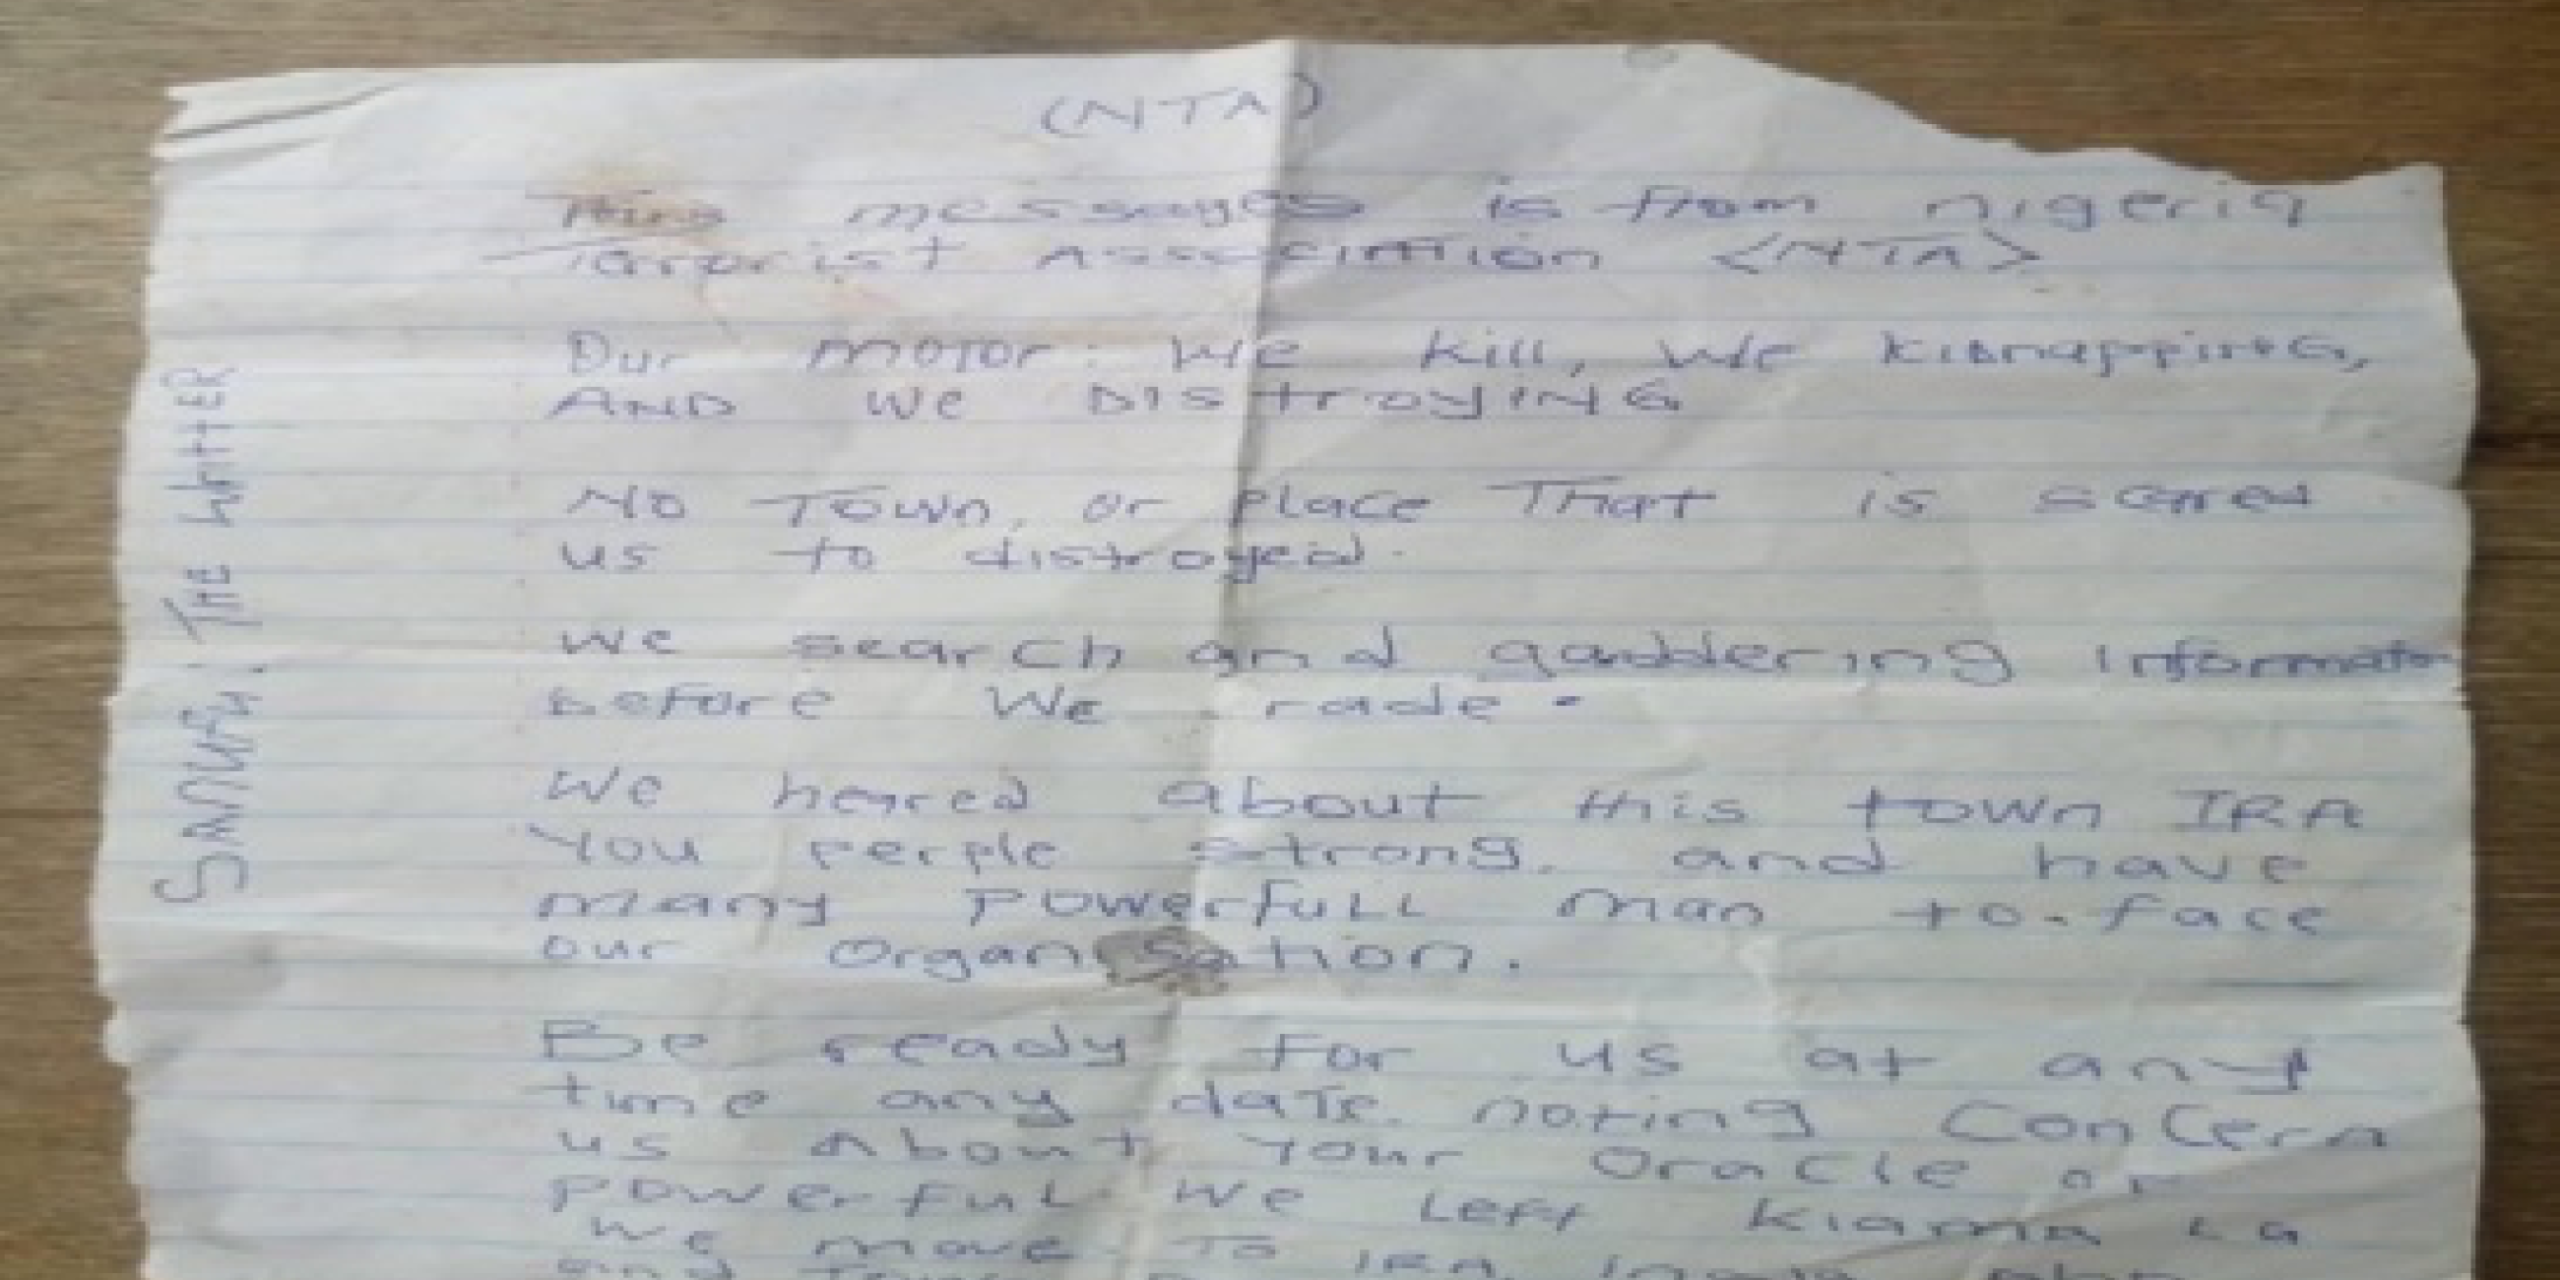 (NTA)
This messages is from nigeria
Terrorist Association <NTA>
Our motor: We kill, we kidnapping,
AND we DIstroyING
No Town, or place That is scared
us to distroyed.
we search and gaddering informatio
before We rade.
We heared about this town IRA
You perple strong. and have
many powerfull man to-face
our Organisation.
Be ready for us at any
time any date. noting Concern
us About your Oracle or
powerful. We Left Kiama LG
We move To IRA,
and
SANUFU: THE WRITTER